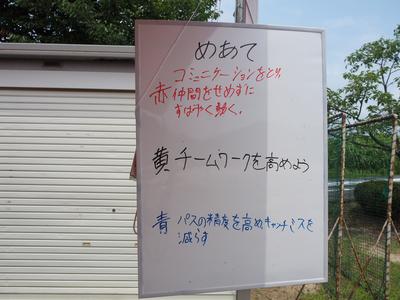 めあて
コミュニケーションをとり、
赤 仲間をせめずに
すばやく動く。
黄 チームワークを高めよう
青 パスの精度を高め、キャッチミスを
減らす